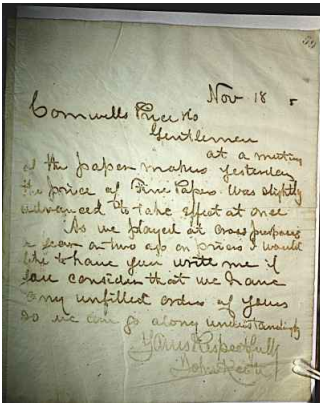 Nov 18
Cornwells Price &Co
Gentlemen
at a meeting
of the paper makers yesterday
the price of Fine Papers was slightly
advanced to take effect at once
As we played at cross purposes
a year or two ago on prices I would
like to have you write me if
you consider that we have
any unfilled orders of yours
so we can go along understandingly
Yours Respectfully
John